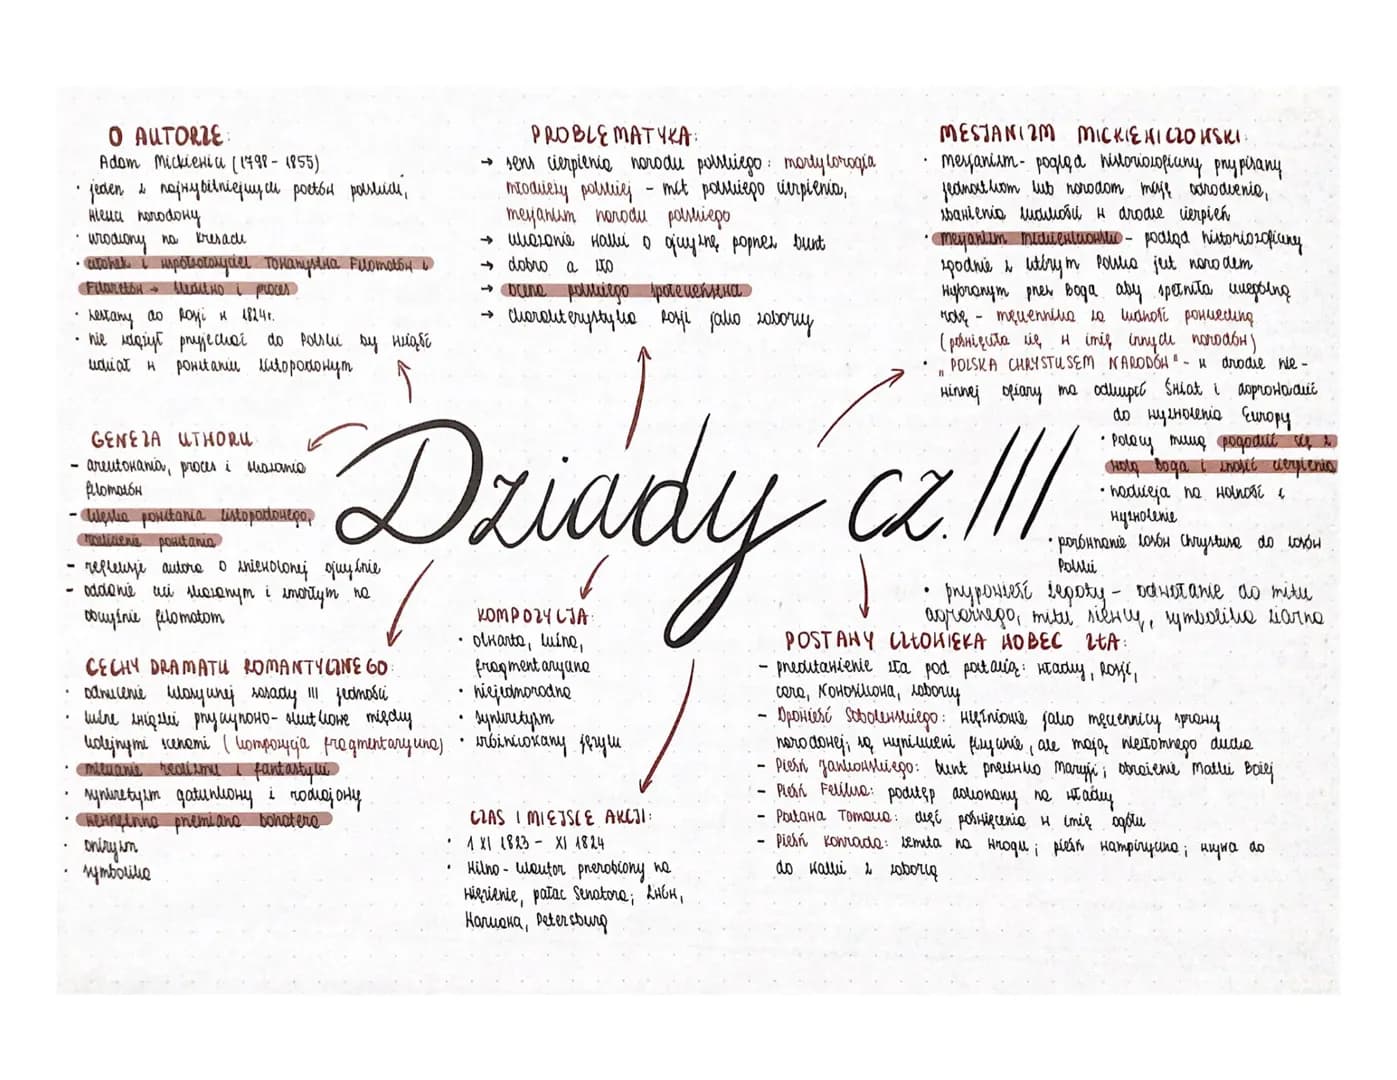 O AUTORZE:
Adam Mickiewicz (1798 - 1855)
· jeden z najwybitniejszych poetów polskich,
wieszcz narodowy
· urodzony na Kresach
· członek i współzałożyciel Towarzystwa Filomatów i
Filaretów → śledztwo i proces
· zesłany do Rosji w 1824r.
· nie zdążył przyjechać do Polski by wziąść
udział w powstaniu listopadowym
GENEZA UTWORU:
- aresztowania, proces i skazania
filomatów
- klęska powstania listopadowego,
rozliczenie powstania
- refleksje autora o zniewolonej ojczyźnie
- oddanie czci skazanym i zmarłym na
obczyźnie filomatom
CECHY DRAMATU ROMANTYCZNEGO:
· odrzucenie klasycznej zasady III jedności
· luźne związki przyczynowo-skutkowe między
kolejnymi scenami (kompozycja fragmentaryczna)
· mieszanie realizmu i fantastyki
· synkretyzm gatunkowy i rodzajowy
· wewnętrzna przemiana bohatera
· oniryzm
· symbolika
PROBLEMATYKA:
→ sens cierpienia narodu polskiego: martylorogia
młodzieży polskiej - mit polskiego cierpienia,
mesjanizm narodu polskiego
→ ukazanie walki o ojczyznę poprzez bunt
→ dobro a zło
→ ocena polskiego społeczeństwa
→ charakterystyka Rosji jako zaborcy
Dziady cz. III
KOMPOZYCJA:
· otwarta, luźna,
fragmentaryczna
· niejednorodna
· synkretyzm
· zróżnicowany język
CZAS I MIEJSCE AKCJI:
· 1 XI 1823 - XI 1824
· Wilno - klasztor przerobiony na
więzienie, pałac Senatora; Lwów,
Warszawa, Petersburg
MESJANIZM MICKIEWICZOWSKI:
· mesjanizm - pogląd historiozoficzny przypisany
jednostkom lub narodom misję odrodzenia,
zbawienia ludzkości w drodze cierpień
· mesjanizm mickiewiczowski - podląd historiozoficzny
zgodnie z którym Polska jest narodem
wybranym przez Boga aby spełniła szczególną
rolę - męczennika za ludność powszechną
(poświęciła się w imię innych narodów)
· "POLSKA CHRYSTUSEM NARODÓW" - w drodze nie-
winnej ofiary ma odkupić świat i doprowadzić
do wyzwolenia Europy
· Polacy muszą pogodzić się z
wolą Boga i znosić cierpienia
· nadzieja na wolność i
wyzwolenie
· porównanie losów Chrystusa do losów
Polski
· przypowieść Żegoty - odwołanie do mitu
agrarnego, mitu siewcy, symbolika ziarna
POSTAWY CZŁOWIEKA WOBEC ZŁA:
- przedstawienie zła pod postacią: władzy, Rosji,
cara, Nowosilcowa, zaborcy
- Opowieść Sobolewskiego: więźniowie jako męczennicy sprawy
narodowej; są wyniszczeni fizycznie, ale mają niezłomnego ducha
- Pieśń Jankowskiego: bunt przeciwko Maryji; obrażenie Matki Bożej
- Pieśń Feliksa: podstęp dokonany na władzy
- Postawa Tomasza: chęć poświęcenia w imię ogółu
- Pieśń Konrada: zemsta na wrogu; pieśń wampiryczna; wzywa do
do walki z zaborcą